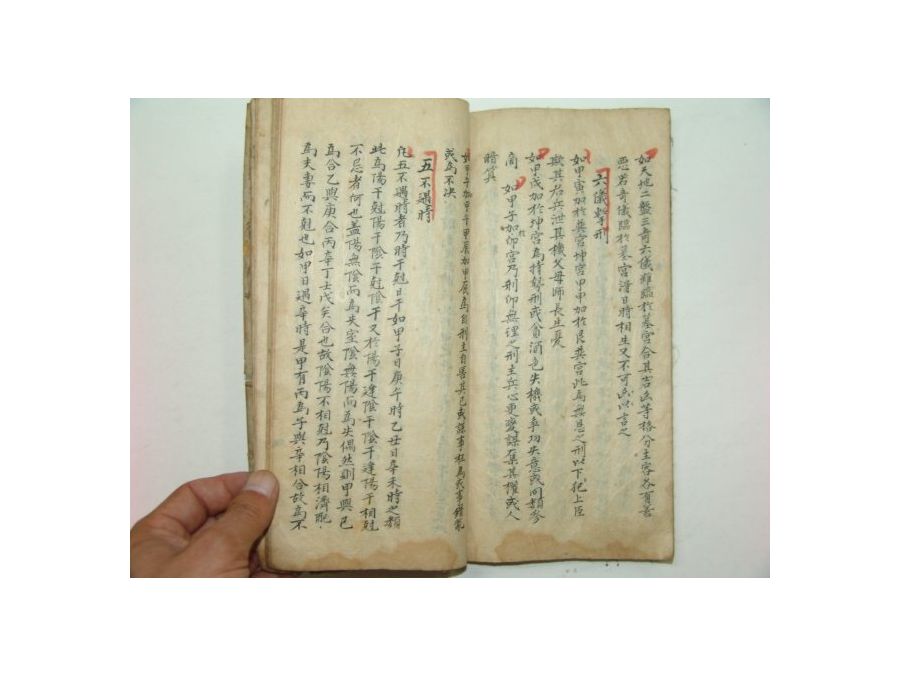 如天地二盤三奇六儀雖臨於墓宮合其吉凶等格分主客各有善
惡若奇儀臨於墓宮得日時相生又不可凶以言之
六儀擊刑
如甲寅加於巽宮坤宮甲申加於艮巽宮此爲無恩之刑以下犯上臣
欺其君兵泄其機父母師長生憂
如甲戌加於坤宮爲持勢刑或貪酒色失機或爭功失意或同類參
商 如甲子加卯宮乃刑卯無理之刑主兵心更變謀在集其權或人
暗算
如甲午加甲午甲辰加甲辰爲自刑主自害其己或謀事 爲或事錯亂
或爲不决
五不遇時
伍五不遇時者乃時干尅日干如甲子日庚午時乙丑日辛未時之類
此爲陽干尅陽干陰干尅陰干又於陽干逢陰干陰干逢陽干相尅
不忌者何也盖陽無陰而爲失室陰無陽而爲失偶然則甲與己
爲合乙與庚合丙辛丁壬戊癸合也故陰陽不相尅乃陰陽相濟配
爲夫妻而不尅也如甲日遇辛時是甲有丙爲子與辛相合故爲不